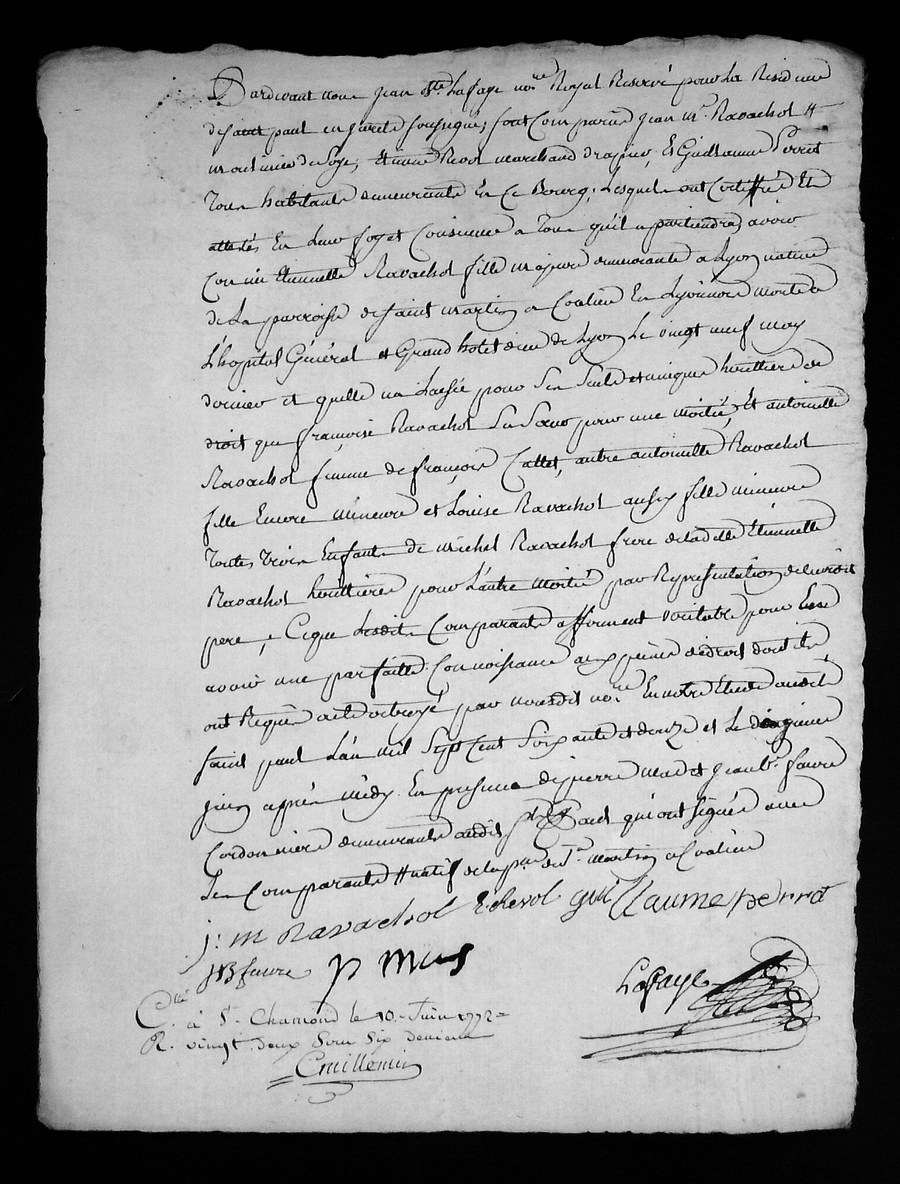 Pardevant nous jean Bte. Lafaye nore Royal Reservé pour La Residence
de saint paul en jarets soussigné; sont Comparûs jean mie. Ravachol #
moulinier de Soye; Etienne marchand drapier, Et Guillaume Perret
Tous habitants demeurants En Ce Bourg; Lesquels ont Certiffié Et
attesté En Leur foy et Consience a Tous qu'il apartiendra, avoir
Connüe Etiennette Ravachol fille majeure demeurante a Lyon native
de La parroisse de saint martin a Coalieu En Lyonnois morte a
L'hopital Général et Grand hotel dieu de Lyon Le vingt neuf may
dernier et quelle na Laissée pour Ses Seuls et uniques heritiers de
droit que françoise Ravachol Sa Sœur pour une moitié, Et antoinette
Ravachol femme de françois Callet, autre antoinette Ravachol
fille Encore mineure et Louise Ravachol aussy fille mineure
Toutes trois Enfants de michel Ravachol frere de ladite Etiennette
Ravachol herittieres pour L'autre moitié par Representation de leurdit
pere, Ceque Lesdits Comparants afferment veritable pour En
avoir une parfaitte Connoissance aux peines de droit dont ils
ont Requis acte octroyé par nousdit nore. En notre Etude audit
saint paul L'an mil Sept Cent Soixante et douze et Le dixieme
juin après midy. En presence de pierre et jean Be. favre
Cordonniers demeurants audit St. Paul qui ont signés avec
Les Comparants # natif de la pse. de St. martin a Coalieu
j: m Ravachol E: guillaume perret
JB favre p mus
Lafaye
Cllé. à St. Chamond le 10. Juin 1772 =
R. vingt deux Sous Six deniers